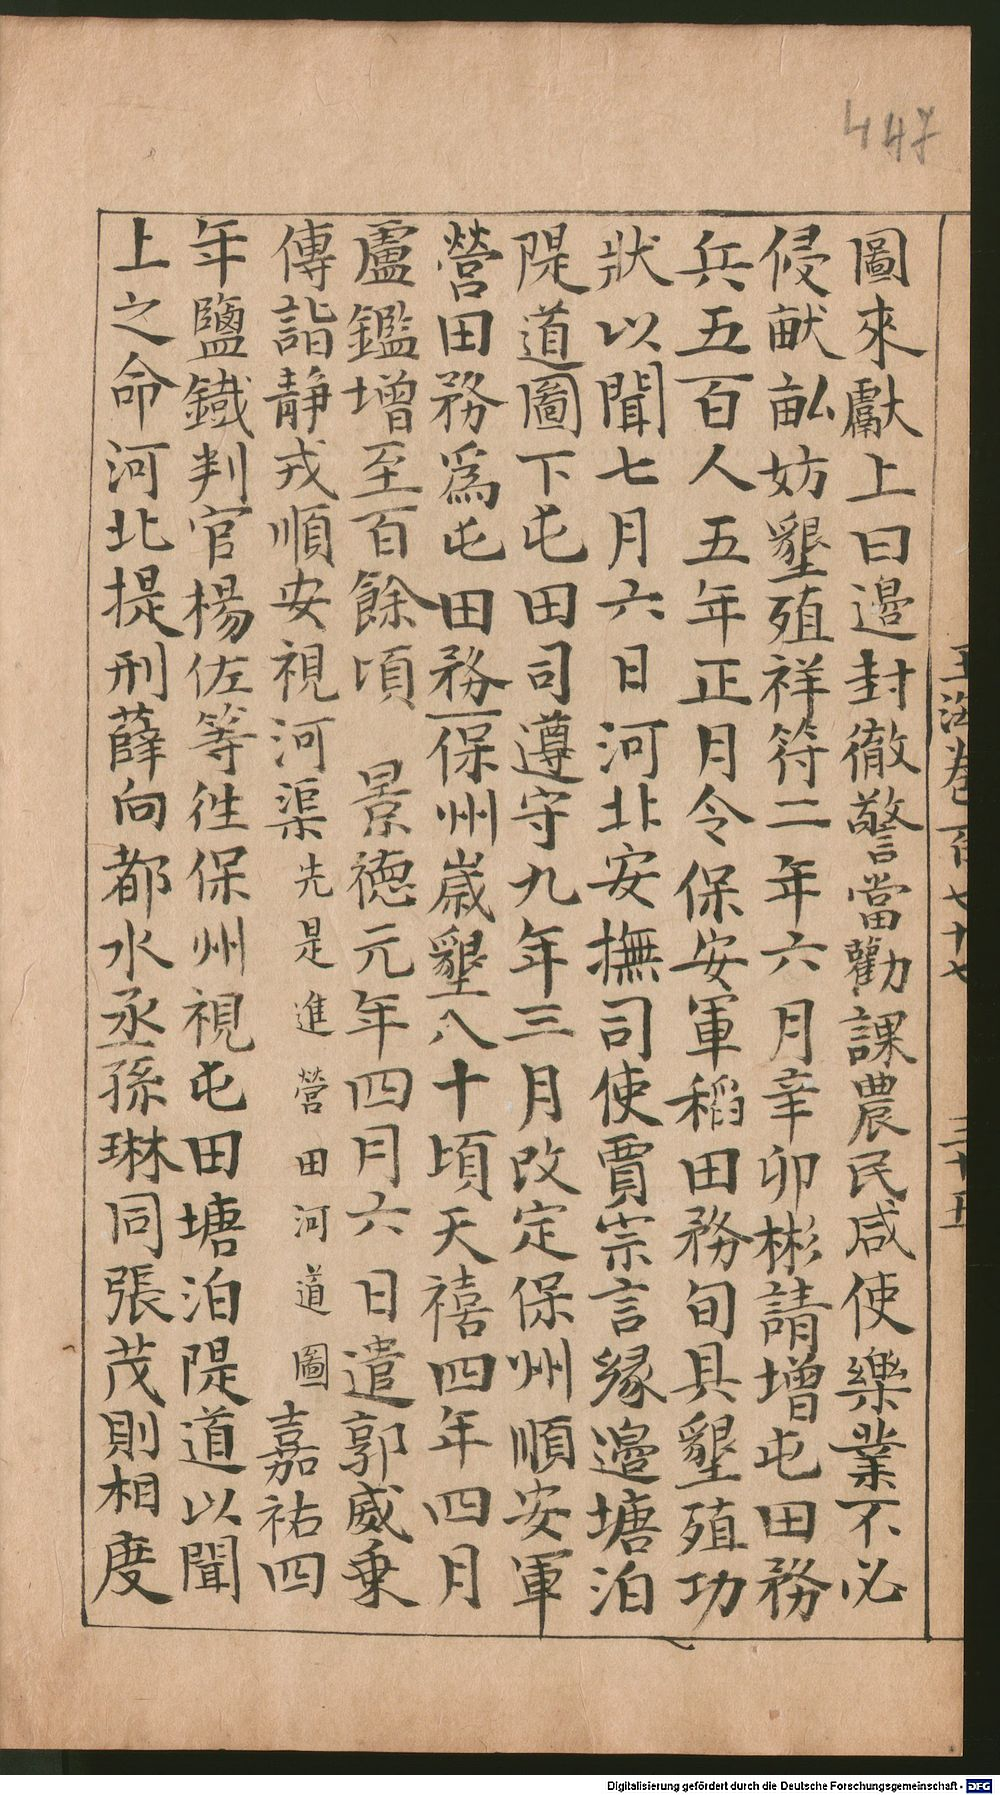 447
玉海卷一百七十七 三十五
圖來獻上曰邊封徹警當勸課農民咸使樂業不必
侵猷畆妨墾殖祥符二年六月辛卯彬請增屯田務
兵五百人五年正月令保安軍稻田務旬具墾殖功
狀以聞七月六日河北安撫司使賈宗言緣邊塘泊
隄道圖下屯田司遵守九年三月改定保州順安軍
營田務爲屯田務保州歳墾八十頃天禧四年四月
盧鑑增至百餘頃 景徳元年四月六日遣郭威乗
傳詣静戎順安視河渠先是進營田河道圖嘉祐四
年鹽鐡判官楊佐等徃保州視屯田塘泊隄道以聞
上之命河北提刑薛向都水丞孫琳同張茂則相度
Digitalisierung gefördert durch die Deutsche Forschungsgemeinschaft - DFG